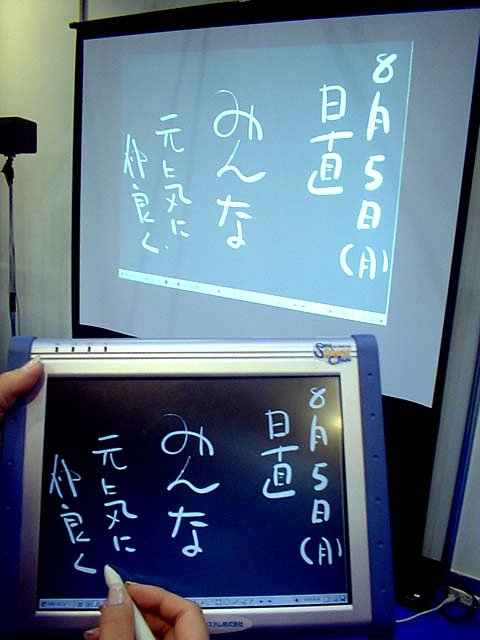 8月5日(月)
日直
みんな
元気に
仲良く
8月5日(月)
日直
みんな
元気に
仲良く